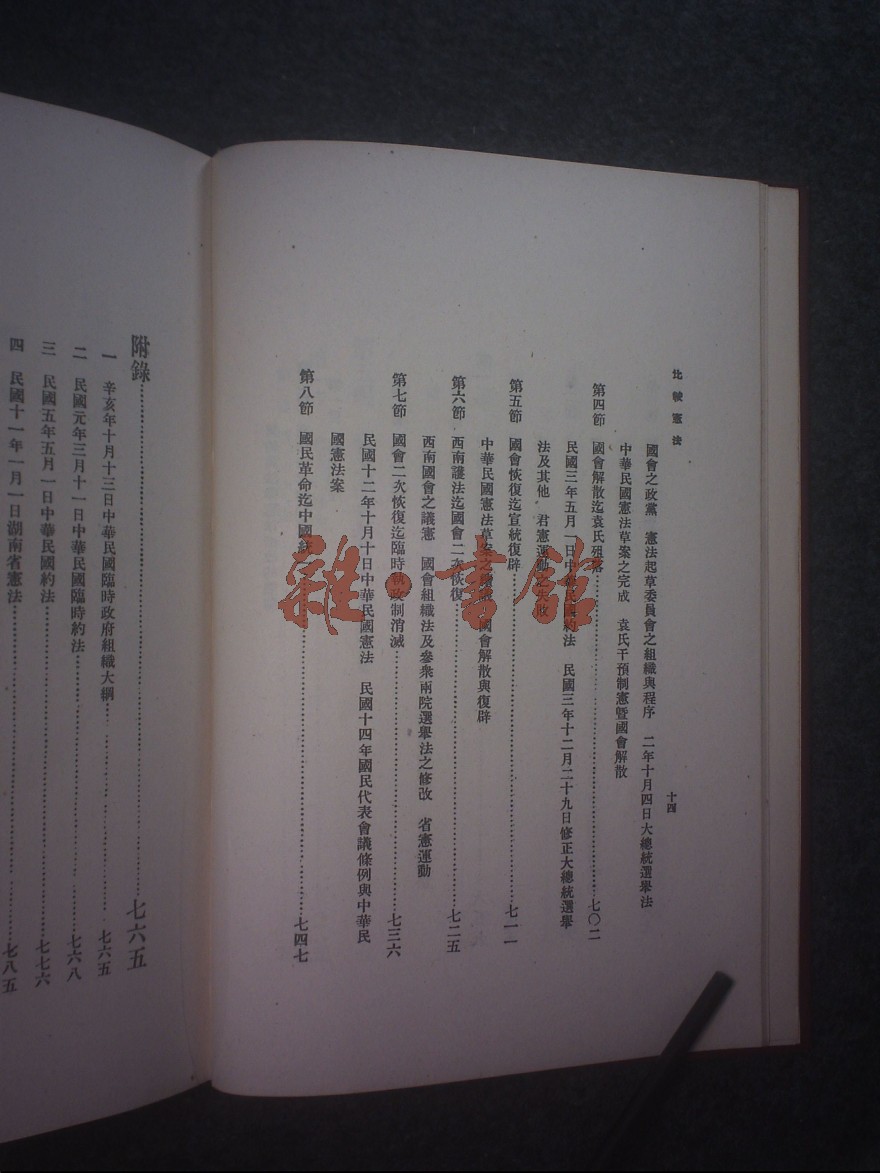 比較憲法
十四
國會之政黨　憲法起草委員會之組織與程序　二年十月四日大總統選舉法
中華民國憲法草案之完成　袁氏干預制憲暨國會解散
第四節　國會解散迄袁氏殂落……七〇二
民國三年五月一日中華民國約法　民國三年十二月二十九日修正大總統選舉
法及其他　君憲運動之失敗
第五節　國會恢復迄宣統復辟……七一一
中華民國憲法草案之　國會解散與復辟
第六節　西南護法迄國會二次恢復……七二五
西南國會之議憲　國會組織法及參衆兩院選舉法之修改　省憲運動
第七節　國會二次恢復迄臨時執政制消滅……七三六
民國十二年十月十日中華民國憲法　民國十四年國民代表會議條例與中華民
國憲法案
第八節　國民革命迄中國統……七四七
附錄……七六五
一　辛亥年十月十三日中華民國臨時政府組織大綱……七六五
二　民國元年三月十一日中華民國臨時約法……七六八
三　民國五年五月一日中華民國約法……七七六
四　民國十一年一月一日湖南省憲法……七八五
雜·書館